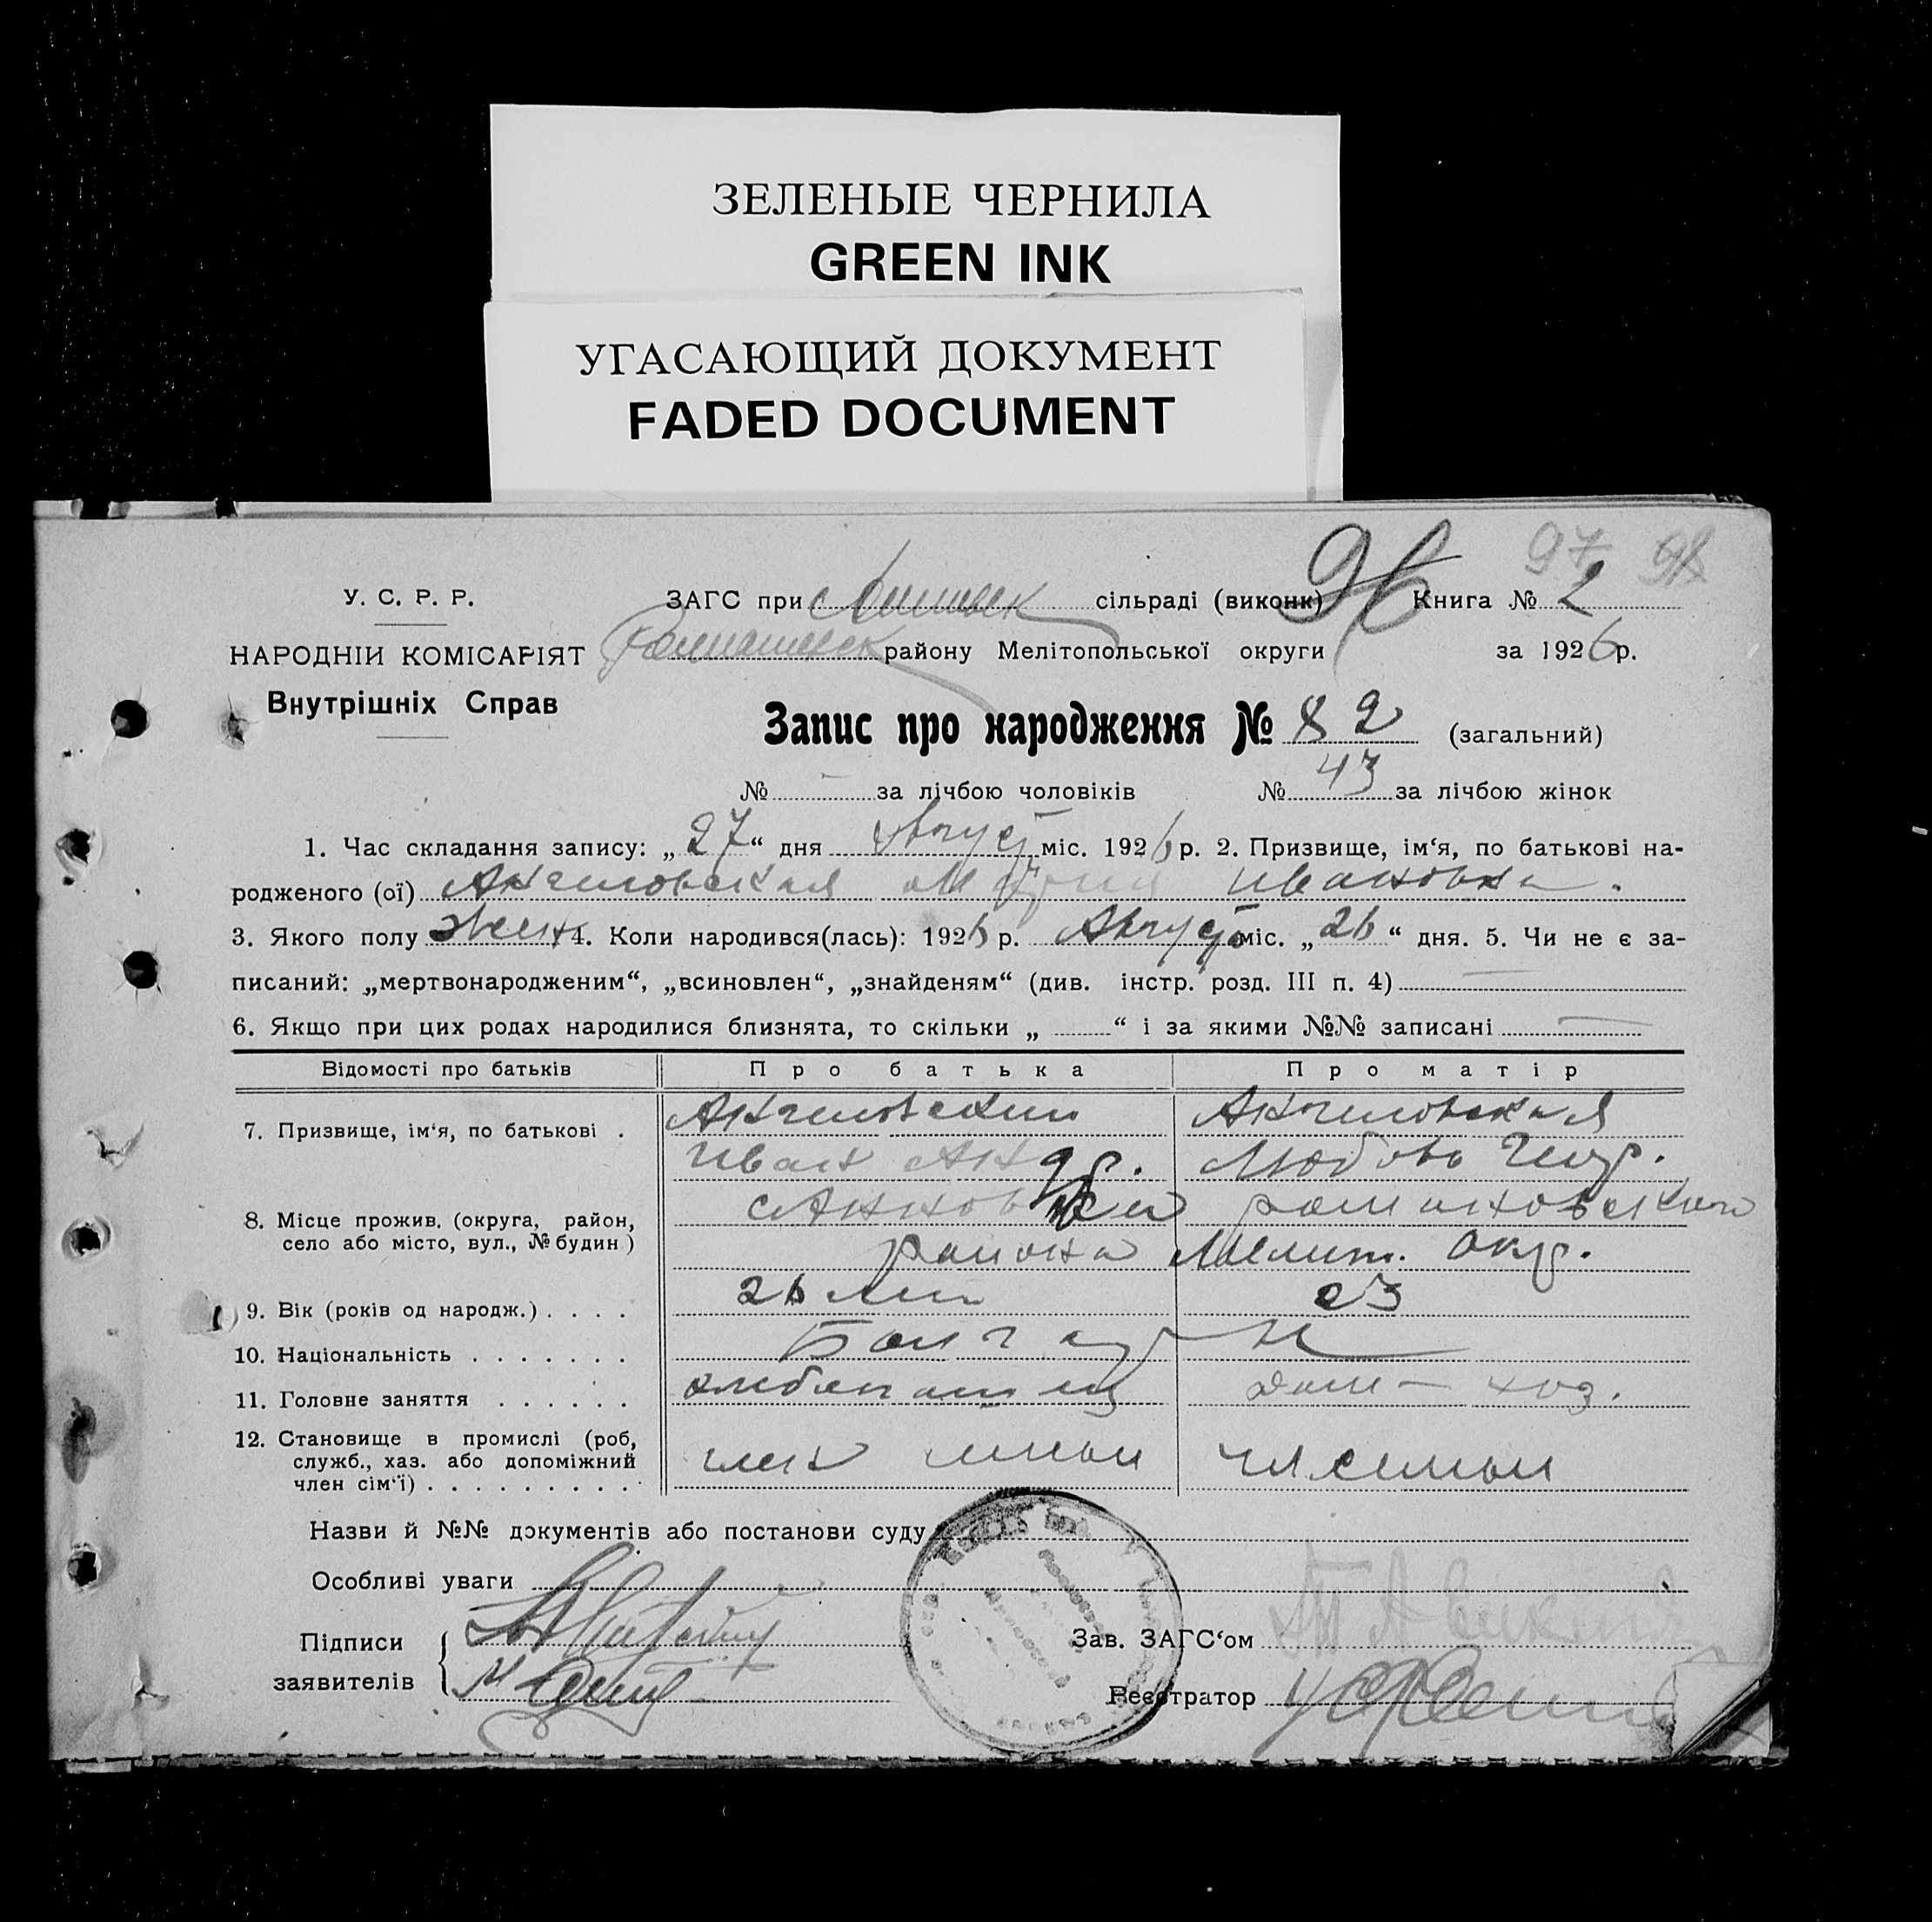 ЗЕЛЕНЫЕ ЧЕРНИЛА
GREEN INK
УГАСАЮЩИЙ ДОКУМЕНТ
FADED DOCUMENT
97 98
96
У. С. Р. Р.
ЗАГС при сільраді (виконк) Книга № 2
НАРОДНІЙ КОМІСАРІЯТ
району Мелітопольської округи за 1926 р.
Внутрішніх Справ
Запис про народження № 82 (загальний)
№ — за лічбою чоловіків № 43 за лічбою жінок
1. Час складання запису: „27“ дня Август міс. 1926 р. 2. Призвище, ім‘я, по батькові на-
родженого (ої) Ангеловская Мария Ивановна.
3. Якого полу жен 4. Коли народився(лась): 1926 р. Августа міс. „26“ дня. 5. Чи не є за-
писаний: „мертвонародженим“, „всиновлен“, „знайденям“ (див. інстр. розд. III п. 4) —
6. Якщо при цих родах народилися близнята, то скільки „ “ і за якими №№ записані —
Відомості про батьків Про батька Про матір
7. Призвище, ім‘я, по батькові . Ангеловский Ангеловская
Иван Андр. Любовь
8. Місце прожив. (округа, район, село або місто, вул., № будин) с Анновка романовского
района Мелит. Окр.
9. Вік (років од народж.) . . . . 26 лет 23
10. Національність . . . . . . . Болгары
11. Головне заняття . . . . . . хлебопашец дом — хоз.
12. Становище в промислі (роб, служб., хаз. або допоміжний член сім‘ї) . . . . . . . . . член семьи чл семьи
Назви й №№ документів або постанови суду
Особливі уваги
Підписи
заявителів
Зав. ЗАГС‘ом
Реєстратор